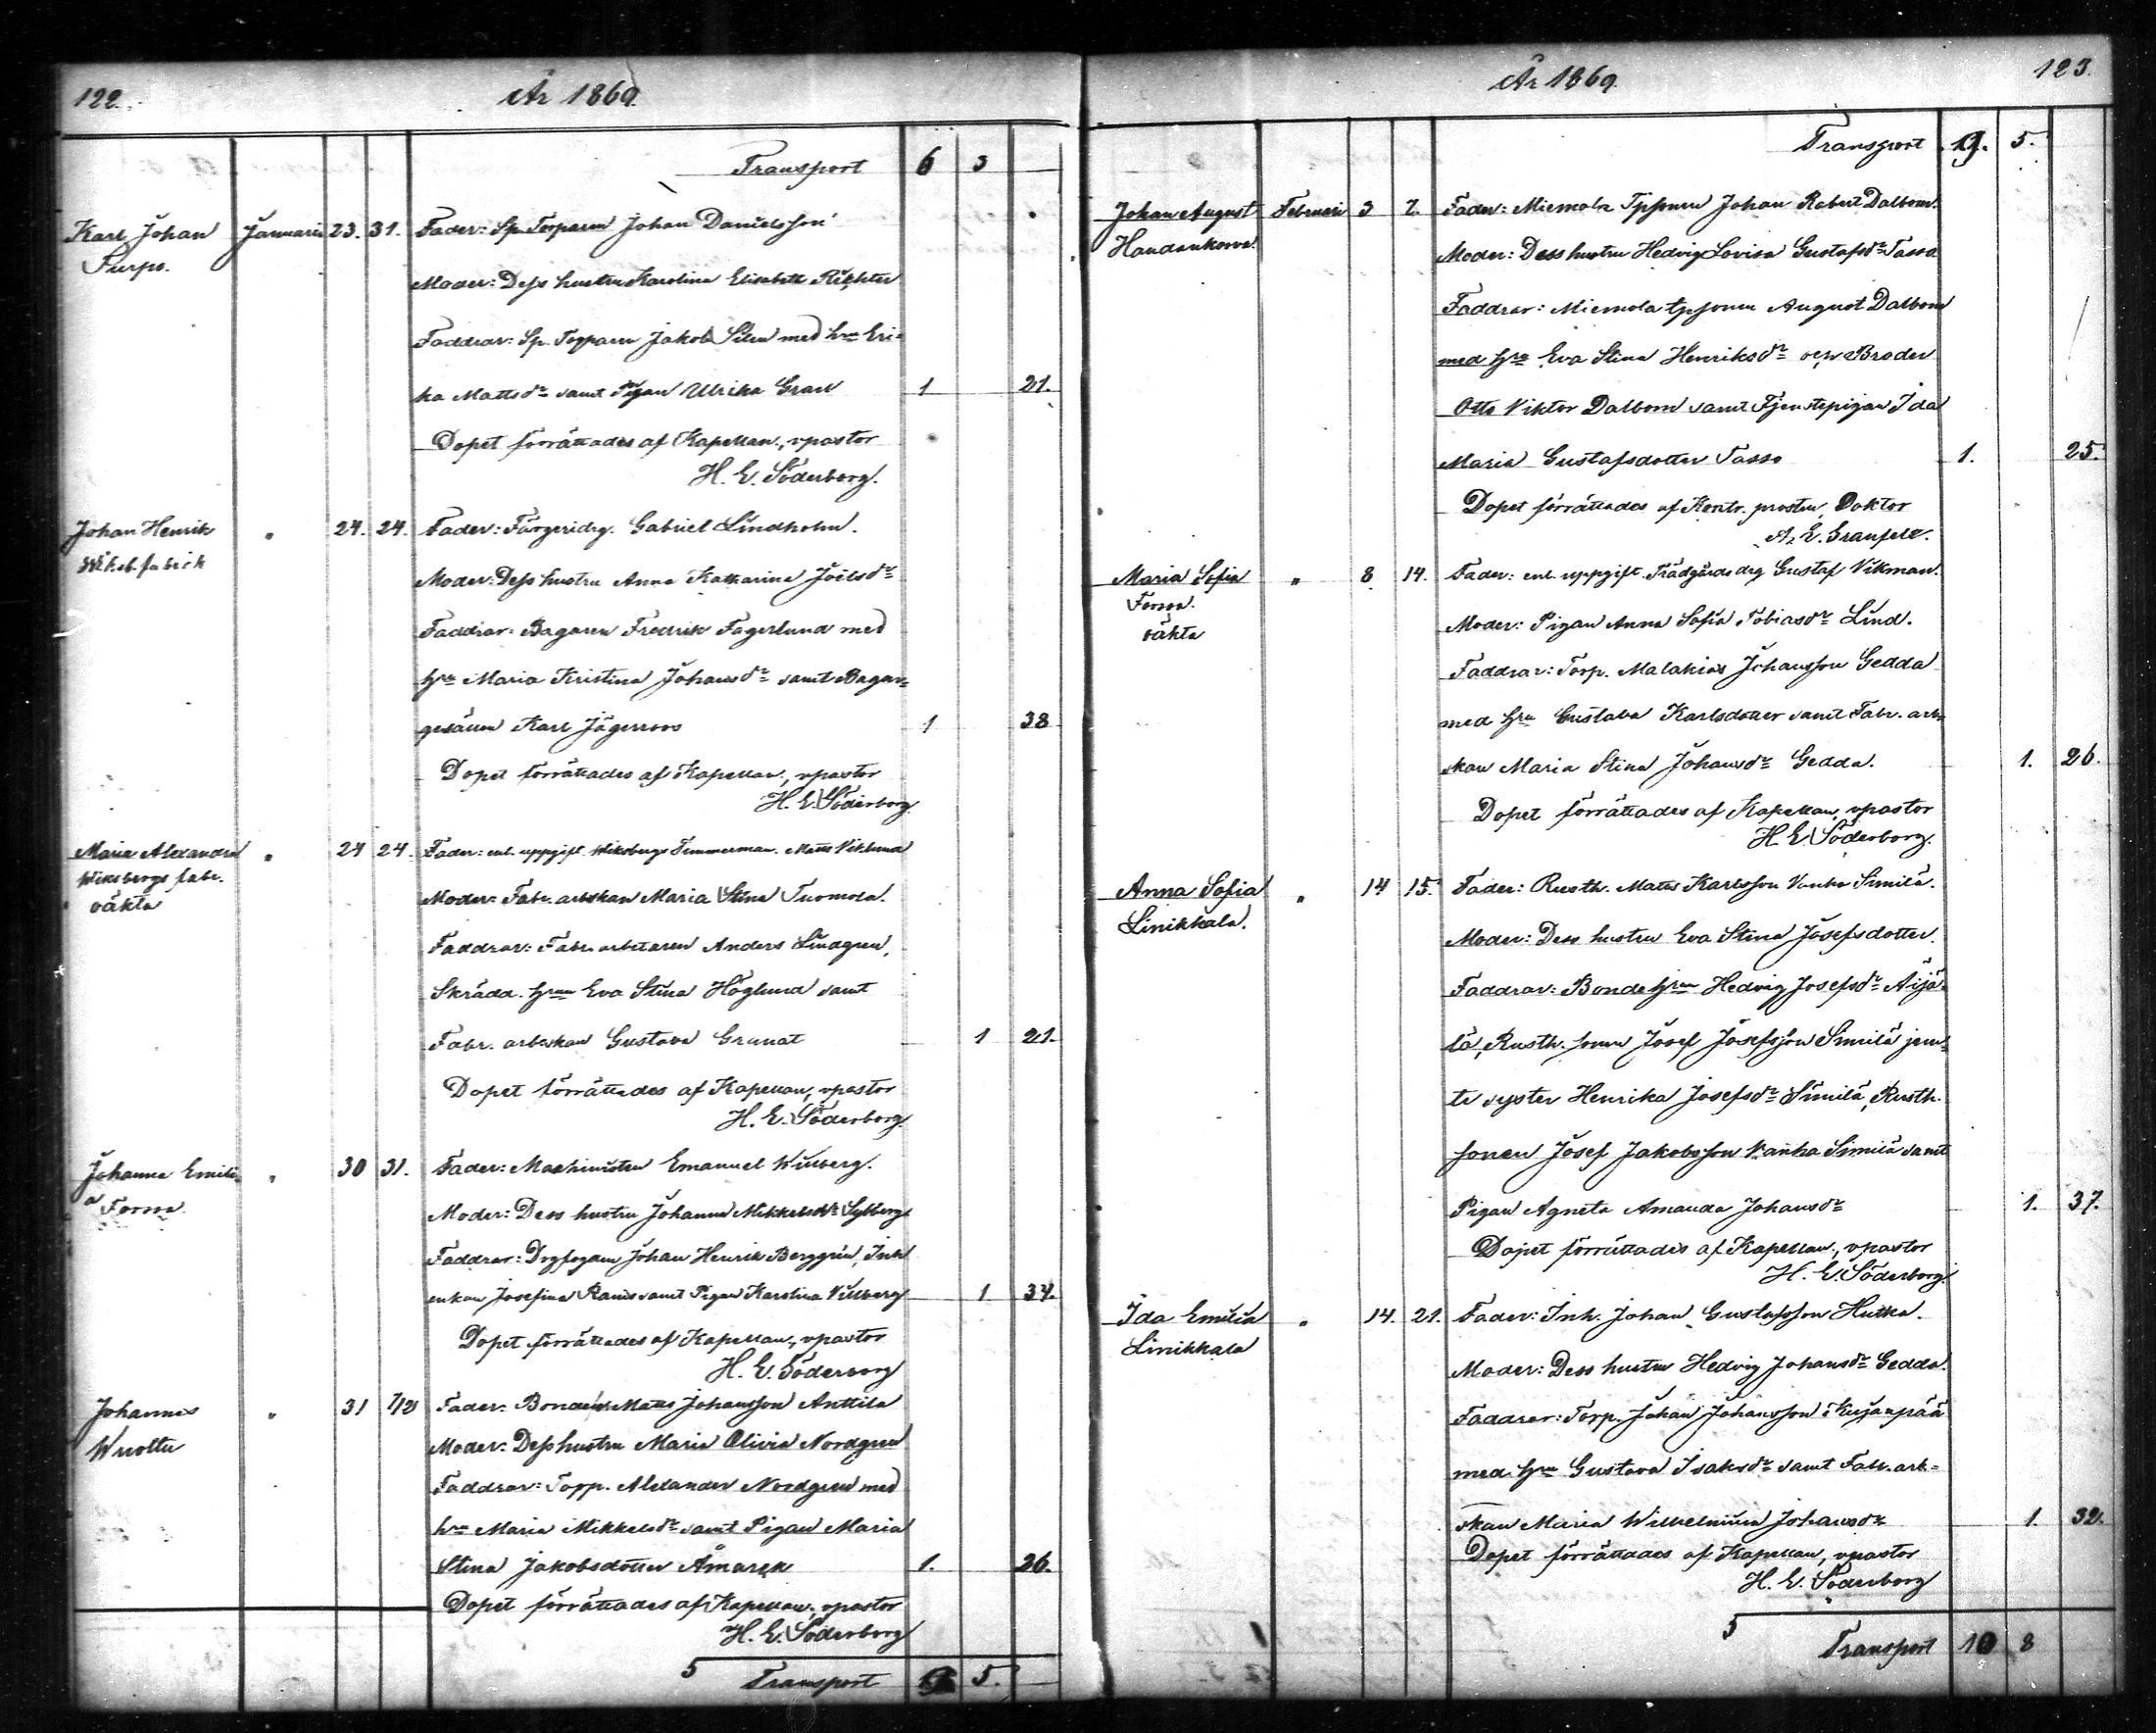 122.
År 1869.
Transport 6 3
Karl Johan Januari 23. 31. Fader: Sp. Torparen Johan Danielsson
Surps.
Moder: Dess hustru Karolina Elisabeth Richter
Faddrar: Sp. Torparen Jakob Silen med hru Eri-
ka Mattsdr samt Pigan Ulrika Gran 1 21.
Dopet förrättades af Kapellan, vpastor
H. E. Söderborg.
Johan Henrik " 24. 24. Fader: Färgeridrg. Gabriel Lindholm.
fabrik
Moder: Dess hustru Anna Katharina Joilsdr
Faddrar: Bagaren Fredrik Fagerlund med
hru Maria Kristina Johansdr samt Bagar-
gesällen Karl Jägerroos 1 38
Dopet förrättades af Kapellan, vpastor
H. E. Söderborg
Maria Alexandra " 24 24. Fader: enl. uppgift Wiksbergs Timmerman Matts Viklund
Wiksbergs fabr.
oäkta
Moder: Fabr. arbskan Maria Stina Tuomola.
Faddrar: Fabr. arbetaren Anders Lindgren,
Skrädd. hrun Eva Stina Höglund samt
Fabr. arbskan Gustava Granat 1 21.
Dopet förrättades af Kapellan, vpastor
H. E. Söderborg.
Johanna Emili- " 30 31. Fader: Machinisten Emanuel Willberg.
a Forssa.
Moder: Dess hustru Johanna Mikkelsdr Sylberg
Faddrar: Drgfogden Johan Henrik Berggrén, Inh
enkan Josefina Ranis samt Pigan Karolina Willberg 1 34.
Dopet förrättades af Kapellan, vpastor
H. E. Söderborg
Johannes " 31 1/2 Fader: Bonden Matts Johansson Anttila
Wuoltu
Moder: Dess hustru Maria Olivia Nordgren
Faddrar: Torp. Alexander Nordgren med
hru Maria Mikkelsdr samt Pigan Maria
Stina Jakobsdotter Åmarck 1. 26.
Dopet förrättades af Kapellan, vpastor
H. E. Söderborg
5 Transport 9 5.
År 1869.
123.
Transport 9. 5.
Johan August Februari 3 7. Fader: Miemola Tpsonen Johan Robert Dalbom.
Haudankorva.
Moder: Dess hustru Hedvig Lovisa Gustafsdr Tasso
Faddrar: Miemola tpsonen August Dalbom
med hru Eva Stina Henriksdr och Broder
Otto Viktor Dalbom samt Tjenstepigan Ida
Maria Gustafsdotter Tasso 1. 25.
Dopet förrättades af Kontr. prosten, Doktor
A. E. Granfelt.
Maria Sofia " 8 14. Fader: enl. uppgift Trädgårds drg Gustaf Vikman.
Forssa.
oäkta
Moder: Pigan Anna Sofia Tobiasdr Lind.
Faddrar: Torp. Malakias Johansson Gedda
med hru Gustava Karlsdotter samt Fabr. arb-
skan Maria Stina Johansdr Gedda. 1. 26.
Dopet förrättades af Kapellan, vpastor
H. E. Söderborg.
Anna Sofia " 14 15. Fader: Rusth. Matts Karlsson Vanha Simila.
Linikkala.
Moder: Dess hustru Eva Stina Josefsdotter.
Faddrar: Bonde hrun Hedvig Josefsdr Äijä-
lä, Rusth. sonen Josef Josefsson Similä jem-
te syster Henrika Josefsdr Similä, Rusth.
sonen Josef Jakobsson Wanha Similä samt
Pigan Agneta Amanda Johansdr 1. 37.
Dopet förrättades af Kapellan, vpastor
H. E. Söderborg.
Ida Emilia " 14. 21. Fader: Inh. Johan Gustafsson Hutka.
Linikkala
Moder: Dess hustru Hedvig Johansdr Gedda.
Faddrar: Torp. Johan Johansson Kujanpää
med hru Gustava Isaksdr samt Fabr. arb-
skan Maria Wilhelmina Johansdr 1. 32.
Dopet förrättades af Kapellan, vpastor
H. E. Söderborg
Transport 10 8